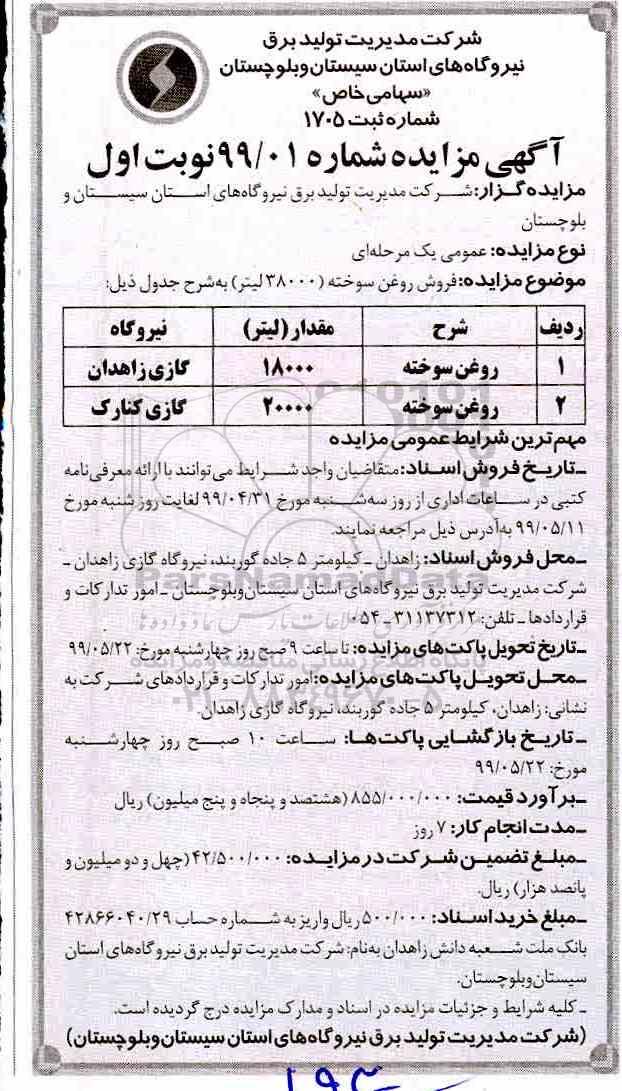 شرکت مدیریت تولید برق
نیروگاه‌های استان سیستان‌وبلوچستان
«سهامی خاص»
شماره ثبت ۱۷۰۵
آگهی مزایده شماره ۹۹/۰۱ نوبت اول
مزایده گزار: شرکت مدیریت تولید برق نیروگاه‌های استان سیستان و
بلوچستان
نوع مزایده: عمومی یک مرحله‌ای
موضوع مزایده: فروش روغن سوخته (۳۸۰۰۰ لیتر) به‌شرح جدول ذیل:
ردیف شرح مقدار (لیتر) نیروگاه
۱ روغن سوخته ۱۸۰۰۰ گازی زاهدان
۲ روغن سوخته ۲۰۰۰۰ گازی کنارک
مهم‌ترین شرایط عمومی مزایده
ـ تاریخ فروش اسناد: متقاضیان واجد شرایط می‌توانند با ارائه معرفی‌نامه
کتبی در ساعات اداری از روز سه‌شنبه مورخ ۹۹/۰۴/۳۱ لغایت روز شنبه مورخ
۹۹/۰۵/۱۱ به‌آدرس ذیل مراجعه نمایند.
ـ محل فروش اسناد: زاهدان ـ کیلومتر ۵ جاده گوربند، نیروگاه گازی زاهدان ـ
شرکت مدیریت تولید برق نیروگاه‌های استان سیستان‌وبلوچستان ـ امور تدارکات و
قراردادها ـ تلفن: ۳۱۱۳۷۳۱۲ ـ ۰۵۴
ـ تاریخ تحویل پاکت‌های مزایده: تا ساعت ۹ صبح روز چهارشنبه مورخ: ۹۹/۰۵/۲۲
ـ محل تحویل پاکت‌های مزایده: امور تدارکات و قراردادهای شرکت به
نشانی: زاهدان، کیلومتر ۵ جاده گوربند، نیروگاه گازی زاهدان.
ـ تاریخ بازگشایی پاکت‌ها: ساعت ۱۰ صبح روز چهارشنبه
مورخ: ۹۹/۰۵/۲۲
ـ برآورد قیمت: ۸۵۵/۰۰۰/۰۰۰ (هشتصد و پنجاه و پنج میلیون) ریال
ـ مدت انجام کار: ۷ روز
ـ مبلغ تضمین شرکت در مزایده: ۴۲/۵۰۰/۰۰۰ (چهل و دو میلیون و
پانصد هزار) ریال.
ـ مبلغ خرید اسناد: ۵۰۰/۰۰۰ ریال واریز به شماره حساب ۴۲۸۶۶۰۴۰/۲۹
بانک ملت شعبه دانش زاهدان به‌نام: شرکت مدیریت تولید برق نیروگاه‌های استان
سیستان‌وبلوچستان.
ـ کلیه شرایط و جزئیات مزایده در اسناد و مدارک مزایده درج گردیده است.
(شرکت مدیریت تولید برق نیروگاه‌های استان سیستان‌وبلوچستان)
ParsNamadData
پایگاه اطلاع رسانی مناقصه و مزایده